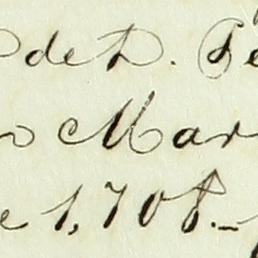 de D. Fe
o Mar
e 1,708.-